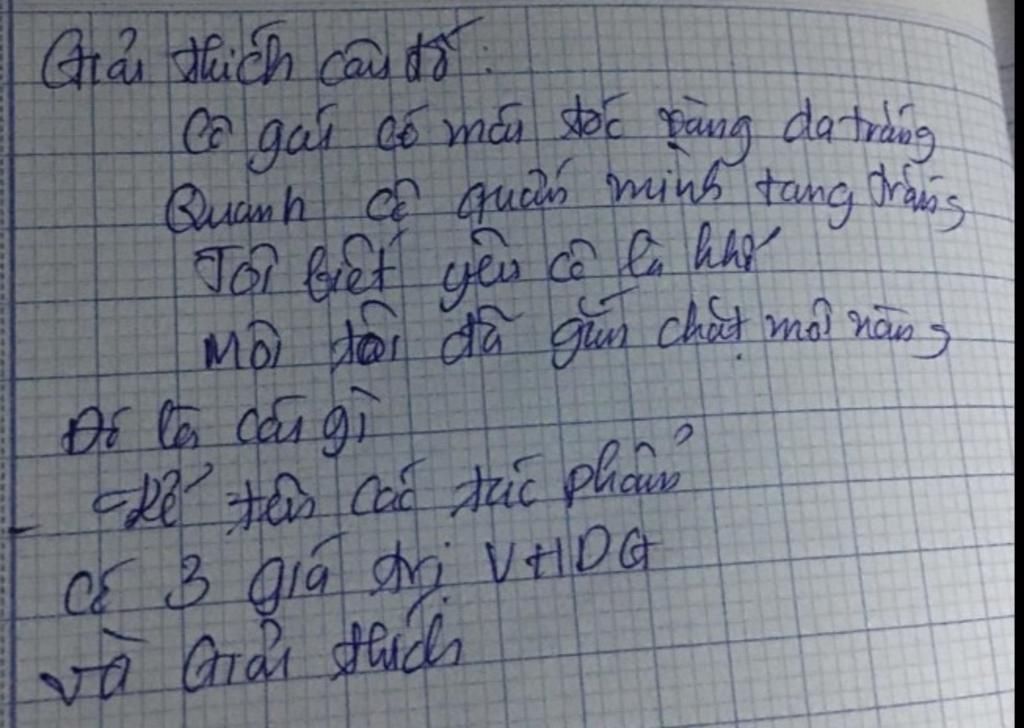 Giải thích câu đố:
Cô gái có mái tóc vàng da trắng
Quanh cô quấn mình tang trắng
Tôi biết yêu cô là khổ
Môi tôi đã gắn chặt môi nàng
Đó là cái gì
- Kể tên các tác phẩm
có 3 giá trị VHDG
và Giải thích